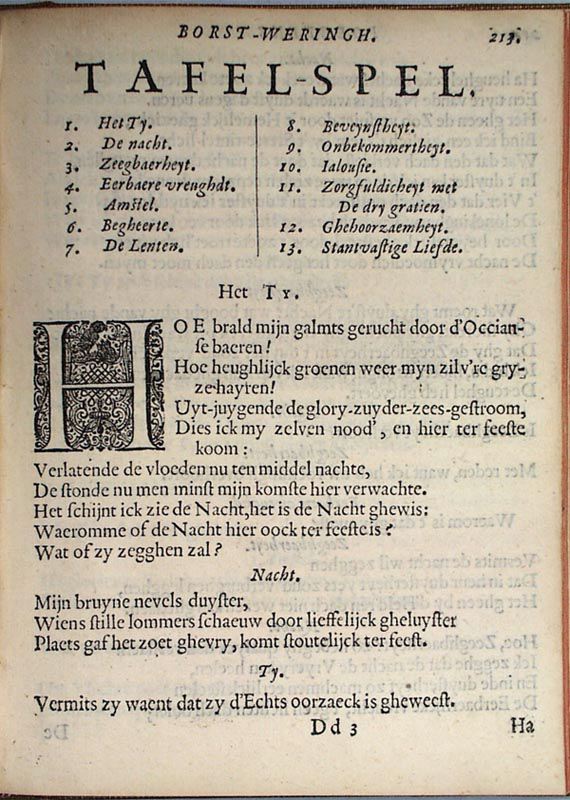 BORST-WERINGH. 213.
TAFEL-SPEL.
1. Het Ty.
2. De nacht.
3. Zeegbaerheyt.
4. Eerbaere vreughdt.
5. Amstel.
6. Begheerte.
7. De Lenten.
8. Beveynſtheyt.
9. Onbekommertheyt.
10. Ialouſie.
11. Zorgfuldicheyt met
De dry gratien.
12. Ghehoorzaemheyt.
13. Stantvaſtige Lieſde.
Het Ty.
HOE brald mijn galmts gerucht door d'Occian-
ſe baeren!
Hoe heughlijck groenen weer myn zilv're gry-
ze-hayren!
Uyt-juygende de glory-zuyder-zees-geſtroom,
Dies ick my zelven nood', en hier ter feeſte
koom:
Verlatende de vloeden nu ten middel nachte,
De ſtonde nu men minſt mijn komſte hier verwachte.
Het ſchijnt ick zie de Nacht, het is de Nacht ghewis:
Waeromme of de Nacht hier oock ter feeſte is?
Wat of zy zegghen zal?
Nacht.
Mijn bruyne nevels duyſter,
Wiens ſtille lommers ſchaeuw door lieffelijck gheluyſter
Plaets gaf het zoet ghevry, komt ſtoutelijck ter feeſt.
Ty.
Vermits zy waent dat zy d'Echts oorzaeck is gheweeſt.
Dd 3 Ha